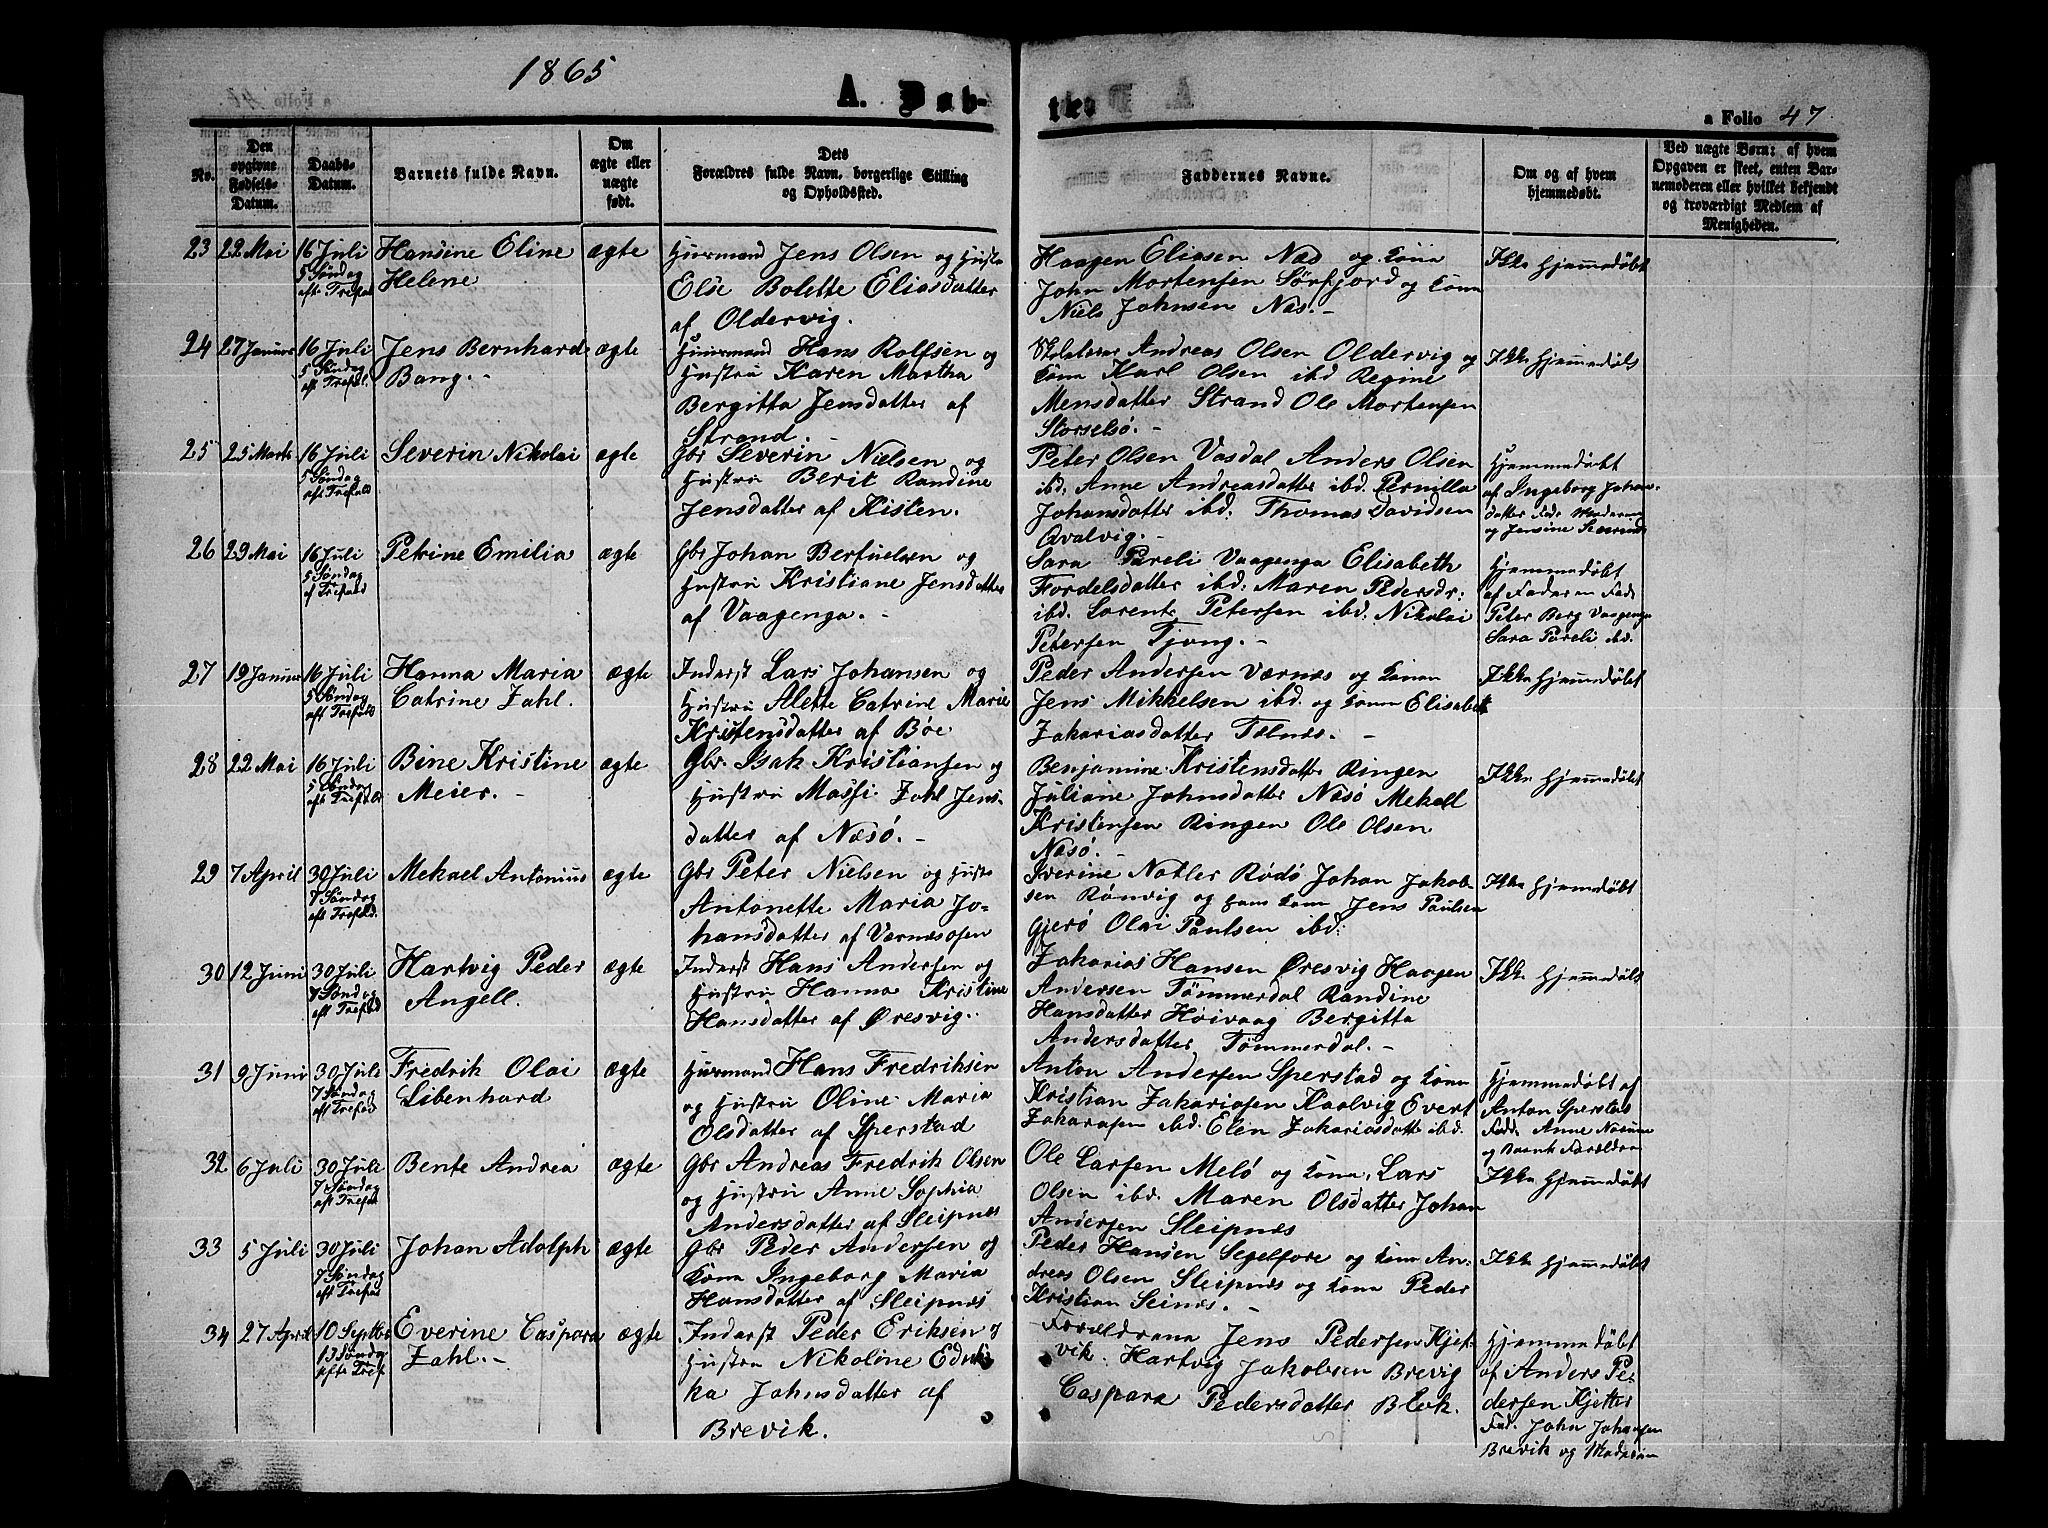 1865
A. Døb-
te.
a Folio 47.
No.
Den opgivne Fødsels-Datum.
Daabs-Datum.
Barnets fulde Navn.
Om ægte eller uægte født.
Dets Forældres fulde Navn, borgerlige Stilling og Opholdssted.
Faddernes Navne.
Om og af hvem hjemmedøbt.
Ved uægte Børn: af hvem Opgaven er skeet, enten Barnemoderen eller hvilket bekjendt og troværdigt Medlem af Menigheden.
23 22 Mai 16 Juli Hansine Eline ægte Huusmand Jens Olsen og Hustru
5 Søndag Helene Else Bolette Eliasdatter
eft. Trefold af Oldervig.
Haagen Eliasen Næs og Kone
John Mortensen Sørfjord og Kone
Niels Johnsen Næs.-
Ikke Hjemmedøbt
24 27 Januar 16 Juli Jens Bernhard ægte Huusmand Hans Rolfsen og
5 Søndag Bang.- Hustru Karen Martha
eft Trefol. Bergitta Jensdatter af
Strand.-
Andreas Olsen Oldervig og
Kone Karl Olsen ibd Regine
Mensdatter Strand Ole Mortensen
Storselsø.-
Ikke Hjemmedøbt
25 25 Marts 16 Juli Severin Nikolai ægte Gbr Severin Nielsen og
5 Søndag Hustru Berit Randine
eft Trefold Jensdatter af Kisten.
Peter Olsen Vasdal Anders Olsen
ibd. Anne Andreasdatter ibd. Pernilla
Johansdatter ibd. Thomas Davidsen
Qvalvig.-
Hjemmedøbt
af Ingeborg Johans-
datter Fad. Moderen
og Jensine
26 29 Mai 16 Juli Petrine Emilia ægte Gbr Johan Bertuelsen og
5 Søndag Hustru Kristiane Jensdatter
af Trefold af Vaagenga.-
Sara Pareli Vaagenga Elisabeth
Fordelsdatter ibd: Maren Pedersdr:
ibd. Lorents Petersen ibd: Nikolai
Petersen Tjong.-
Hjemmedøbt
af Faderen Fad.
Peter Berg Vaagenga
Sara Pareli ibd.
27 19 Januar 16 Juli Hanna Maria ægte Inderst Lars Johansen og
5 Søndag Catrine Zahl. Hustru Alette Catrine Marie
eft Trefold Kristensdatter af Bøe
Peder Andersen Værnæs og Konen
Jens Mikkelsen ibd. og Kone Elisabet
Zakariasdatter Telnes.-
Ikke Hjemmedøbt
28 22 Mai 16 Juli Bine Kristine ægte Gbr. Isak Kristiansen og
5 Søndag Meier.- Hustru Massi Zahl Jens-
eft Trefold datter af Næsø.-
Benjamine Kristensdatter Ringen
Juliane Johnsdatter Næsø Mekael
Kristensen Ringen Ole Olsen
Næsø.-
Ikke Hjemmedøbt
29 7 April 30 Juli Mekael Antonius ægte Gbr Peter Nielsen og Hustr
7 Søndag Antonette Maria Jo-
eft Trefold. hansdatter af Værnesosen
Iverine Natler Rødø Johan Jakob-
sen Rønvig og hans Kone Jens Paulsen
Gjerø Olai Paulsen ibd:
Ikke Hjemmedøbt
30 12 Juni 30 Juli Hartvig Peder ægte Inderst Hans Andersen og
7 Søndag Angell. Hustru Hanna Kristine
eft Trefold Hansdatter af Øresvig.
Zakarias Hansen Øresvig Haagen
Andersen Tømmerdal Randine
Hansdatter Høivaag Bergitta
Andersdatter Tømmerdal.-
Ikke Hjemmedøbt
31 9 Juni 30 Juli Fredrik Olai ægte Huusmand Hans Fredriksen
7 Søndag Libenhard og Hustru Oline Maria
eft Trefold Olsdatter af Sperstad
Anton Andersen Sperstad og Kone
Kristian Zakariasen Kaalvig Evert
Zakarasen ibd. Elen Zakariasdatte ibd.
Hjemmedøbt af
Anton Sperstad
Fadd. Anne
og Barnets Forældre
32 6 Juli 30 Juli Bente Andrea ægte Gbr Andreas Fredrik Olsen
7 Søndag og Hustru Anne Sophia
eft Trefol Andersdatter af Sleipnes
Ole Larsen Melø og Kone, Lars
Olsen ibd. Maren Olsdatter Johan
Andersen Sleipnæs
Ikke Hjemmedøbt
33 5 Juli 30 Juli Johan Adolph ægte Gbr Peder Andersen og
7 Søndag Kone Ingeborg Maria
eft Trefol Hansdatter af Sleipnæs
Peder Hansen Segelfore og Kone An-
dreas Olsen Sleipnæs og Kone Peder
Kristian Seinæs.-
Ikke Hjemmedøbt
34 27 April 10 Septbr Everine Caspara ægte Inderst Peder Eriksen og
13 Søndag Zahl.- Hustru Nikoline Edvi-
efte Tref ka Johnsdatter af
Brevik.
Forældrene Jens Pedersen Kjet-
vik. Hartvig Jakobsen Brevig
Caspara Pedersdatter Blok.
Hjemmedøbt
af Anders Pe-
dersen Kjetter
Fad. John Johansen
Brevik og Moderen